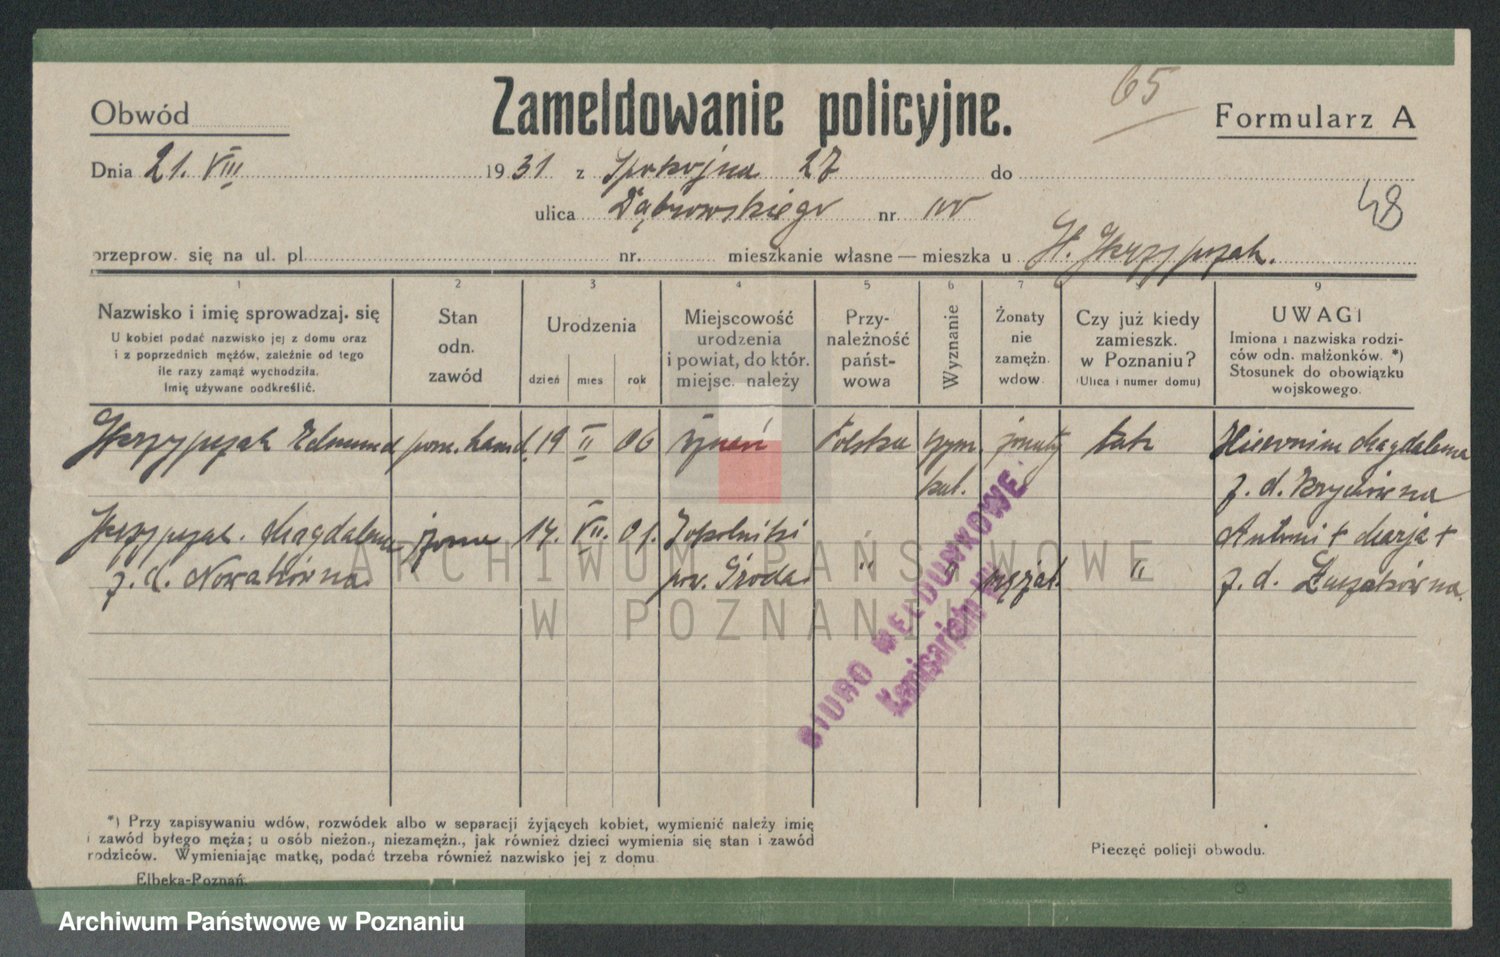 65
Obwód
Zameldowanie policyjne.
Formularz A
Dnia 21. VIII 1931 z Spokojna 27 do
48
ulica Dąbrowskiego nr.
przeprow. się na ul. pl nr. mieszkanie własne — mieszka u Skrzypczak.
1 2 3 4 5 6 7 9
Nazwisko i imię sprowadzaj. się
U kobiet podać nazwisko jej z domu oraz
i z poprzednich mężów, zależnie od tego
ile razy zamąż wychodziła.
Imię używane podkreślić.
Stan
odn.
zawód
Urodzenia
dzień mies rok
Miejscowość
urodzenia
i powiat, do któr.
miejsc. należy
Przy-
należność
państ-
wowa
Wyznanie
Żonaty
nie
zamężn.
wdow.
Czy już kiedy
zamieszk.
w Poznaniu?
(Ulica i numer domu)
UWAGI
Imiona i nazwiska rodzi-
ców odn. małżonków. *)
Stosunek do obowiązku
wojskowego.
Skrzypczak Edmund pom. hand. 19 II 06 Polska rzym. żonaty tak Hieronim Magdalena
kat. z. d.
Skrzypczak. Magdalena żona 17. VII. 07. Antoni + Marja +
z. d. Nowakówna pow. Środa " " mężat. " z. d.
ARCHIWUM PAŃSTWOWE
W POZNANIU
BIURO MELDUNKOWE
Komisarjatu
*) Przy zapisywaniu wdów, rozwódek albo w separacji żyjących kobiet, wymienić należy imię
i zawód byłego męża; u osób nieżon., niezamężn., jak również dzieci wymienia się stan i zawód
rodziców. Wymieniając matkę, podać trzeba również nazwisko jej z domu
Pieczęć policji obwodu.
Elbeka-Poznań.
Archiwum Państwowe w Poznaniu